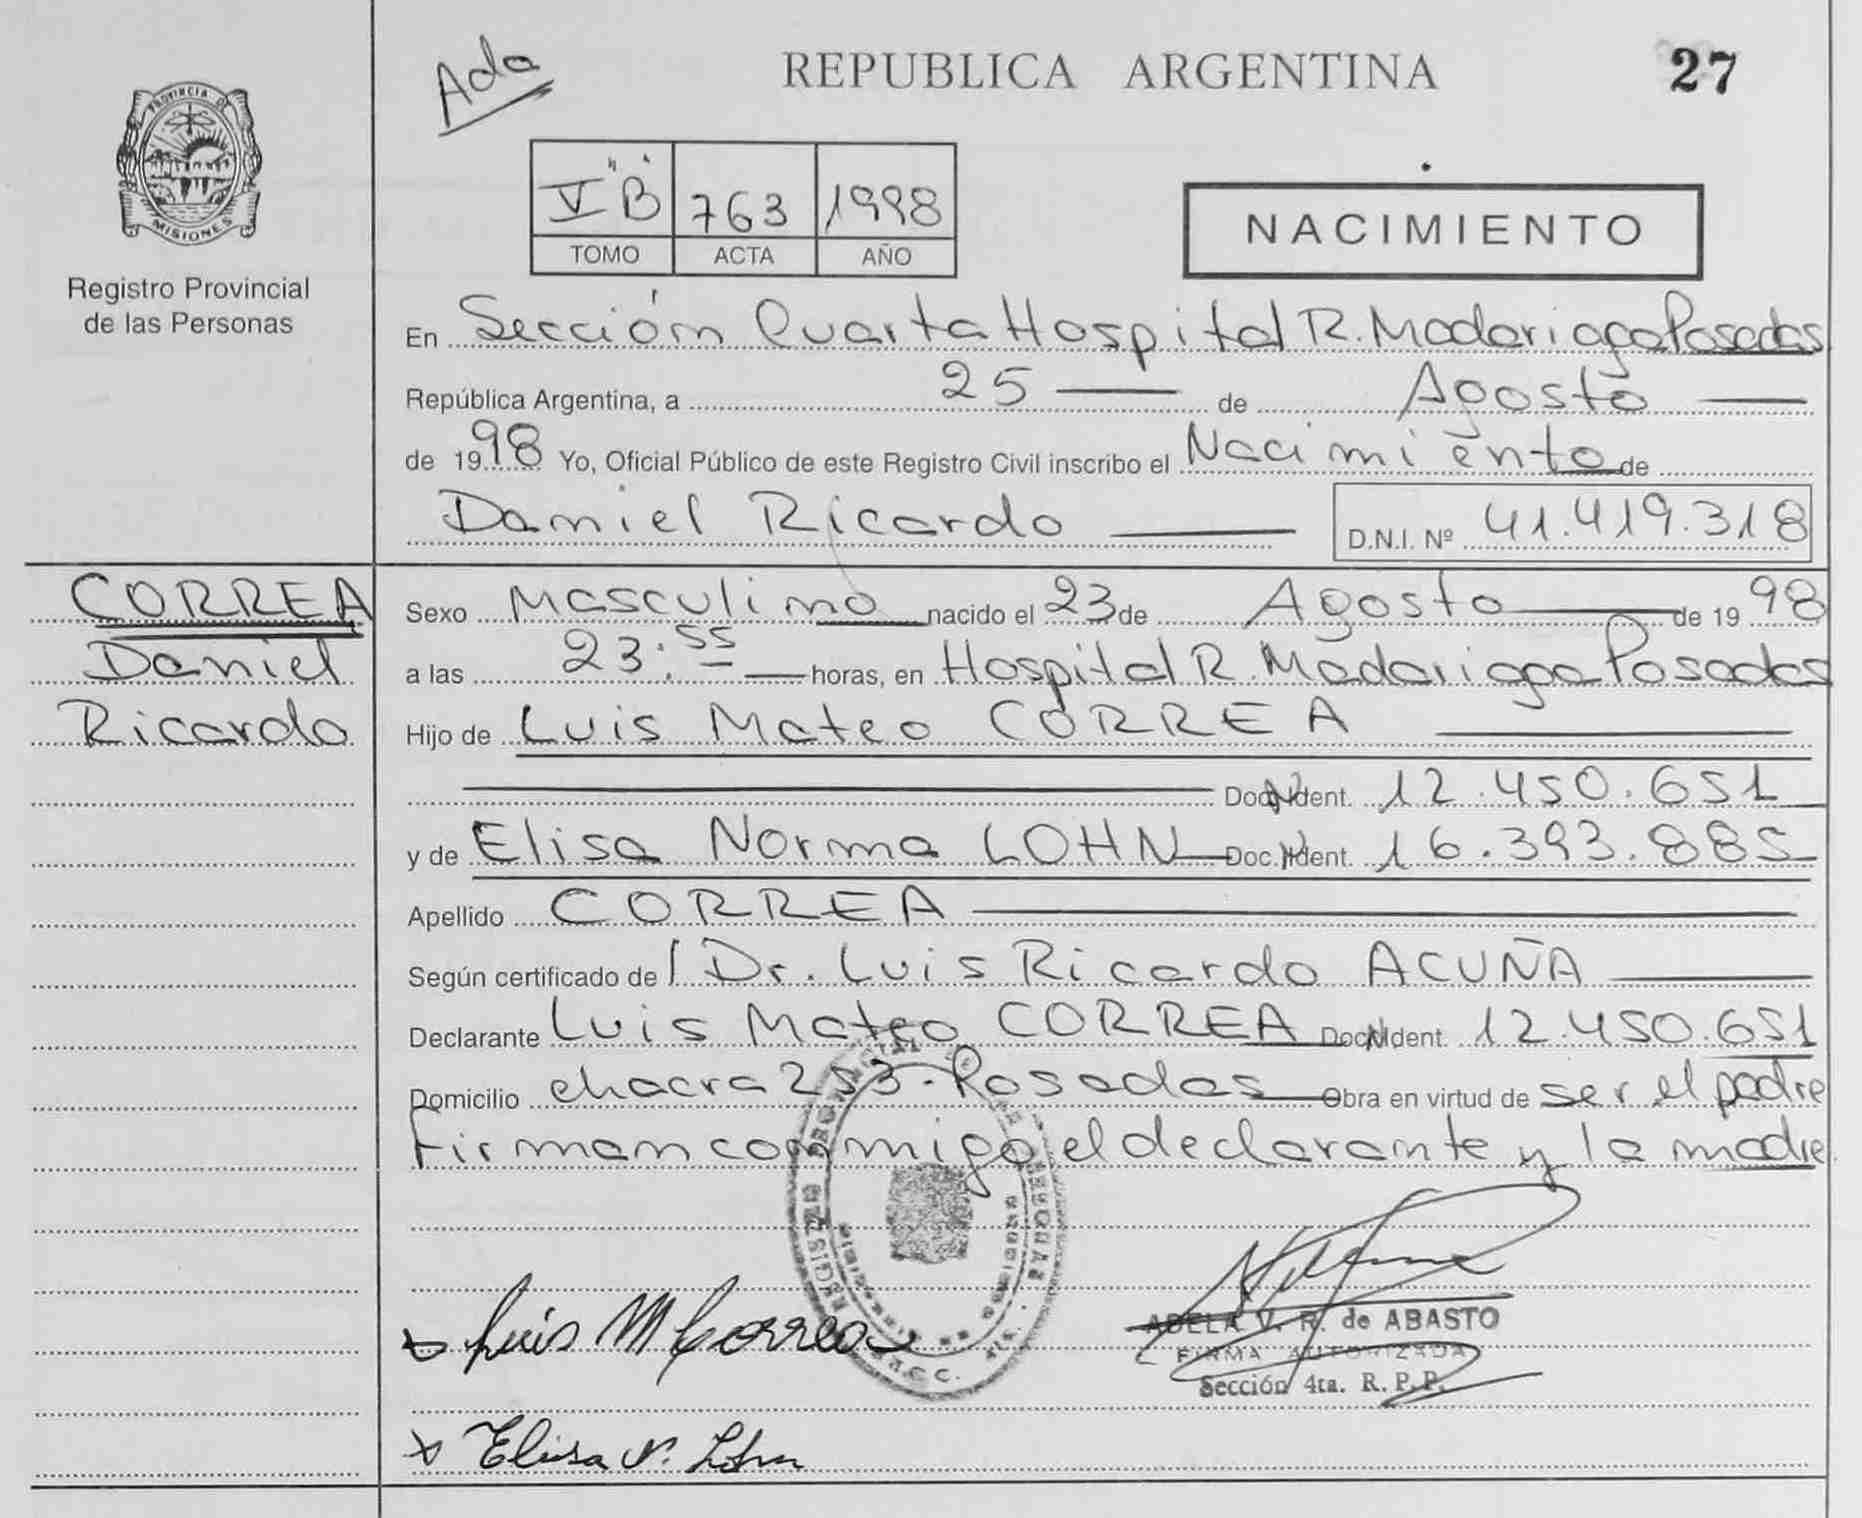 Ada
REPUBLICA ARGENTINA
27
PROVINCIA DE
MISIONES
Registro Provincial
de las Personas
V "B" 763 1998
TOMO ACTA AÑO
NACIMIENTO
En Sección Cuarta Hospital R. Madariaga Posadas
República Argentina, a 25 de Agosto
de 1998 Yo, Oficial Público de este Registro Civil inscribo el Nacimiento de
Daniel Ricardo D.N.I. Nº 41.419.318
CORREA
Daniel
Ricardo
Sexo Masculino nacido el 23 de Agosto de 1998
a las 23:55 horas, en Hospital R. Madariaga Posadas
Hijo de Luis Mateo CORREA
Doc. Ident. 12.450.651
y de Elisa Norma LOHN Doc. Ident. 16.393.885
Apellido CORREA
Según certificado de Dr. Luis Ricardo ACUÑA
Declarante Luis Mateo CORREA Doc. Ident. 12.450.651
Domicilio chacra 253. Posadas Obra en virtud de ser el padre
Firman conmigo el declarante y la madre
Luis M Correa
ADELA V. R. de ABASTO
FIRMA AUTORIZADA
Sección 4ta. R. P. P.
Elisa N. Lohn